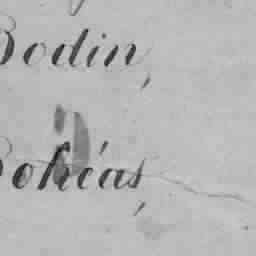 Bodin,
Bohéas,